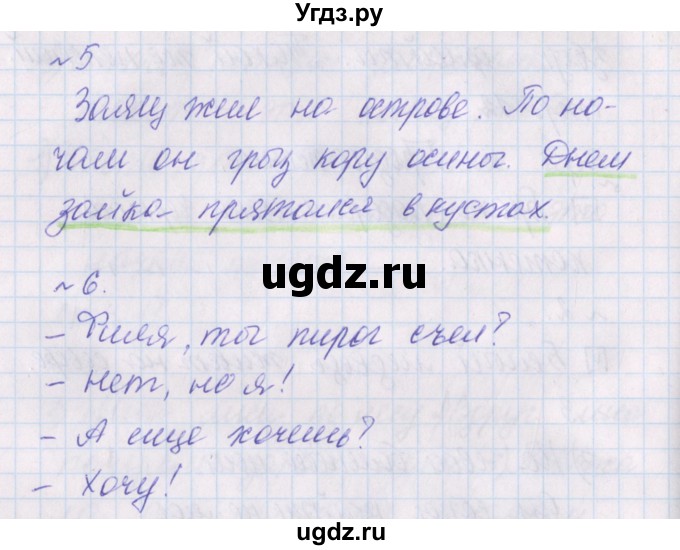 Угдз.ру
№5
Заяц жил на острове. По но-
чам он грыз кору осины. Днем
зайка прятался в кустах.
ugdz.ru
№6.
- Филя, ты пирог съел?
- Нет, не я!
- А еще хочешь?
- Хочу!
ugdz.ru